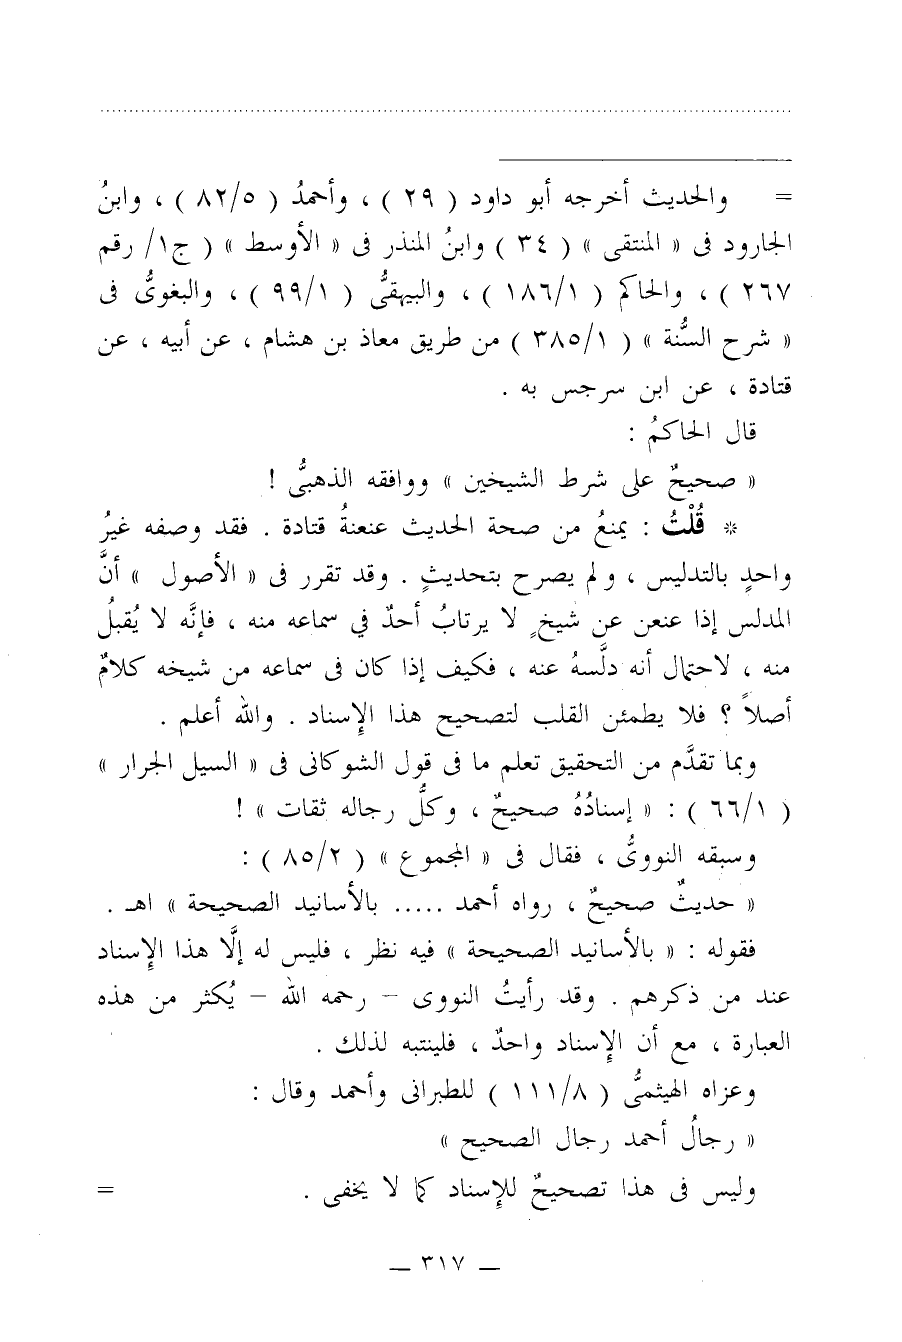 = والحديث أخرجه أبو داود ( ٢٩ ) ، وأحمدُ ( ٨٢/٥ ) ، وابنُ
الجارود فى « المنتقى » ( ٣٤ ) وابنُ المنذر فى « الأوسط » ( ج١/ رقم
٢٦٧ ) ، والحاكم ( ١٨٦/١ ) ، والبيهقىُّ ( ٩٩/١ ) ، والبغوىُّ فى
« شرح السُّنة » ( ٣٨٥/١ ) من طريق معاذ بن هشام ، عن أبيه ، عن
قتادة ، عن ابن سرجس به .
قال الحاكمُ :
« صحيحٌ على شرط الشيخين » ووافقه الذهبىُّ !
* قُلْتُ : يمنعُ من صحة الحديث عنعنةُ قتادة . فقد وصفه غيرُ
واحدٍ بالتدليس ، ولم يصرح بتحديثٍ . وقد تقرر فى « الأصول » أنَّ
المدلس إذا عنعن عن شيخٍ لا يرتابُ أحدٌ في سماعه منه ، فإنَّه لا يُقبلُ
منه ، لاحتمال أنه دلَّسهُ عنه ، فكيف إذا كان فى سماعه من شيخه كلامٌ
أصلاً ؟ فلا يطمئن القلب لتصحيح هذا الإسناد . والله أعلم .
وبما تقدَّم من التحقيق تعلم ما فى قول الشوكانى فى « السيل الجرار »
( ٦٦/١ ) : « إسنادُهُ صحيحٌ ، وكلُّ رجاله ثقات » !
وسبقه النووىُّ ، فقال فى « المجموع » ( ٨٥/٢ ) :
« حديثٌ صحيحٌ ، رواه أحمد ..... بالأسانيد الصحيحة » اهـ .
فقوله : « بالأسانيد الصحيحة » فيه نظر ، فليس له إلَّا هذا الإسناد
عند من ذكرهم . وقد رأيتُ النووى – رحمه الله – يُكثر من هذه
العبارة ، مع أن الإسناد واحدٌ ، فلينتبه لذلك .
وعزاه الهيثمىُّ ( ١١١/٨ ) للطبرانى وأحمد وقال :
« رجالُ أحمد رجال الصحيح »
وليس فى هذا تصحيحٌ للإسناد كما لا يخفى . =
— ٣١٧ —